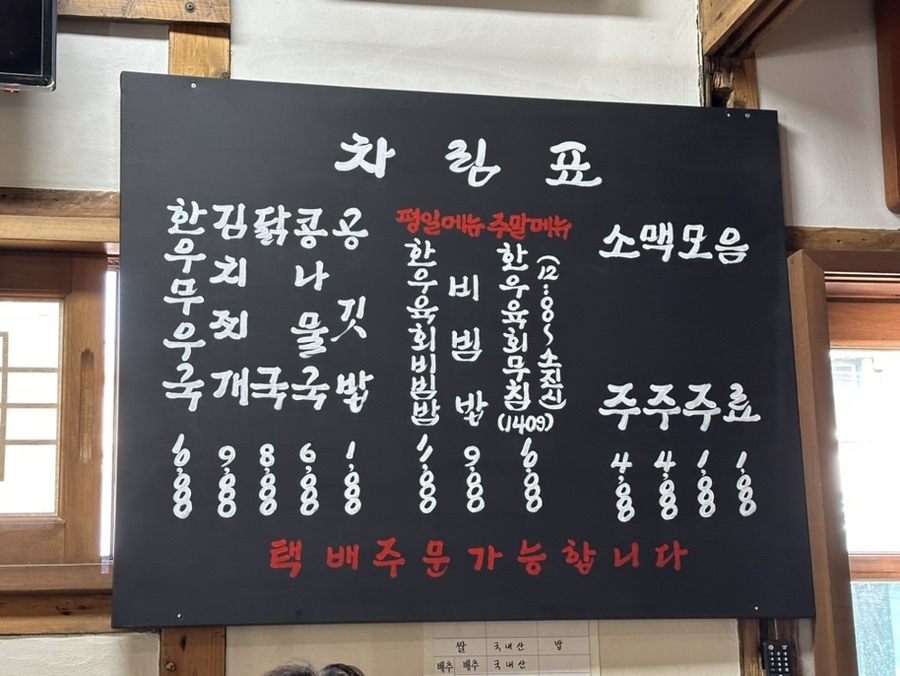 차림표
한우무우국
김치찌개 9,000
닭국 8,000
콩나물국 6,000
공깃밥 1,000
평일메뉴
한우육회비빔밥
비빔밥 9,000
주말메뉴
한우육회무침 (140g)
(12:00~소진시)
소주 4,000
맥주 4,000
모주 1,000
음료 1,000
택배주문가능합니다
쌀 국내산 밥
배추 배추 국내산